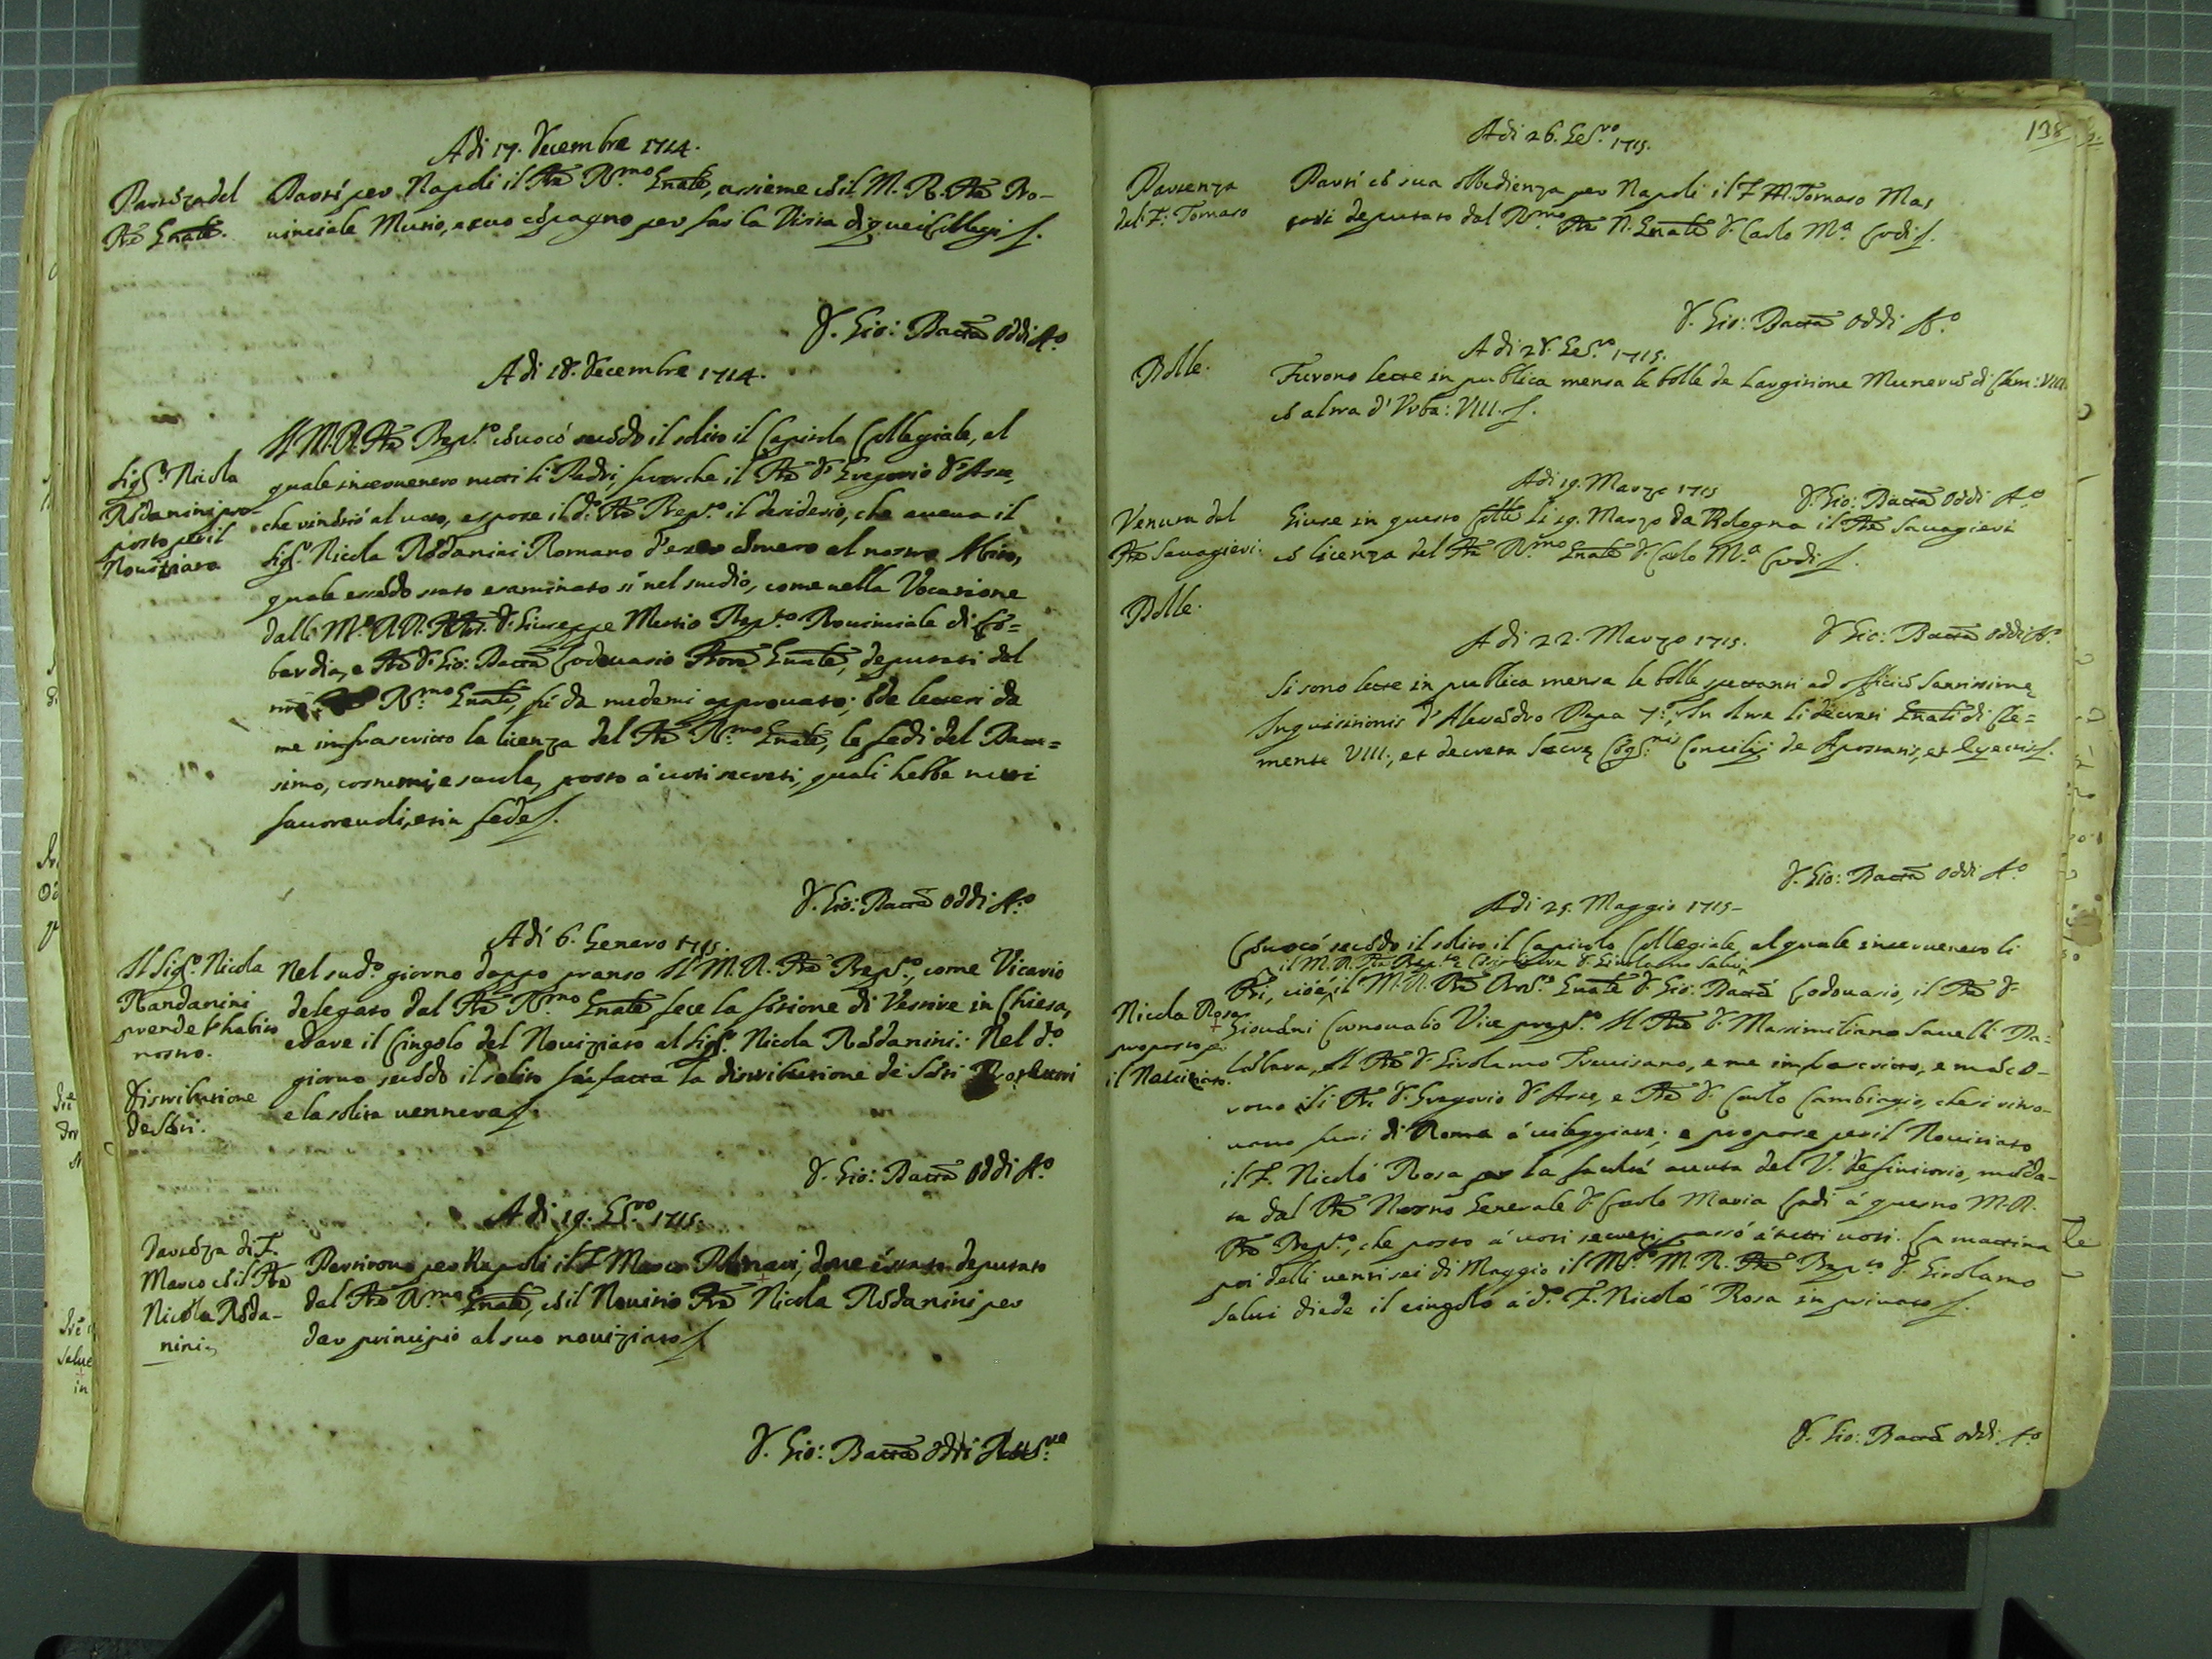 Adi 17. Decembre 1714.
Partẽza del
Prẽ Gnãle.
Partì per Napoli il Prẽ R.mo Gnãle, assieme cõ il M. R. Prẽ Pro-
uinciale Musio, e suo cõpagno per far la Visita di quei Collegi
D. Gio: Battã Oddi At.o
Adi 18. Decembre 1714.
Sig.r Nicola
Rõdanini pro-
posto per il
Nouitiato
Il M. R. Prẽ Prep.to cõuocò secõdo il solito il Capitolo Collegiale, al
quale interuenero tutti li Padri, fuorche il Prẽ D. Gregorio d'Asse,
che rinũtiò al uoto, espose il d.o Prẽ Prep.to il desiderio, che aueua il
Sig.r Nicola Rõdanini Romano d'esser ãmesso al nostro Abito,
quale essẽdo stato esaminato sì nel studio, come nella Vocatione
dalli M.o RR. PPri. D. Giuseppe Musio Prep.to Prouinciale di Lõ=
bardia, e Prẽ D. Gio: Battã Codouasio Gnãle, deputati dal
nrõ R.mo Gnãle, fù da medemi approuato; õde lettesi da
me infrascritto la licenza del Prẽ R.mo Gnãle, le fedi del Batte=
simo, costumi, e scuole, posto à uoti secreti, quali hebbe tutti
fauoreuoli, et in fede
D. Gio: Battã Oddi At.o
Adi 6. Genaro 1715.
Il Sig.r Nicola
Randanini
prende l'habito
nostro.
Nel sud.o giorno doppo pranso Il M. R. Prẽ Prep.to, come Vicario
delegato dal Prẽ R.mo Gnãle fece la fũtione di Vestire in Chiesa,
e dare il Cingolo del Nouiziato al Sig.r Nicola Rõdanini: Nel d.o
Distributione
de Sãti.
giorno secõdo il solito fù fatta la distributione de Sãti Protettori
e la solita uennera
D. Gio: Battã Oddi At.o
Adi 19. G.ro 1715.
Partẽza di F.
Marco cõ il Prẽ
Nicola Rõda-
nini
Partirono per Napoli il F. Marco, doue è stato deputato
dal Prẽ R.mo Gnãle, cõ il Nouitio Prẽ Nicola Rõdanini per
dar principio al suo nouiziato
D. Gio: Battã Oddi Att.re
138
Adi 26. Ge.ro 1715.
Partenza
del F. Tomaso
Partì cõ sua obbedienza per Napoli il F. Tomaso Mas
deputato dal R.mo Prẽ N. Gnãle D. Carlo M.a Lodi
D. Gio: Battã Oddi At.o
Adi 28. Ge.ro 1715.
Bolle.
Furono lette in publica mensa le bolle de Largitione Munerũ di Clem: VIII
cõ altra d'Urba: VIII.
Adi 19. Marzo 1715
D. Gio: Battã Oddi At.o
Venuta del
Prẽ Sauagieri.
Giunse in questo Coll.o li 19. Marzo da Bologna il Prẽ Sauagieri
cõ licenza del Prẽ R.mo Gnãle D. Carlo M.a Lodi
Bolle.
Adi 22. Marzo 1715.
D. Gio: Battã Oddi At.o
Si sono lette in publica mensa le bolle spettanti ad officiũ Santissime
Inquisitionis d'Alessãdro Papa 7.o, In oltre li decreti Gnãli di Cle=
mente VIII., et decreta Sacre Cõg.nis Concilij de Apostatis, et Eyectis
D. Gio: Battã Oddi At.o
Adi 25. Maggio 1715-
Cõuocò secõdo il solito il Capitolo Collegiale, al quale interuenero li
il M. R. Prẽ Prep.to D. Girolamo Salui,
Pri, cioè il M. R. Prẽ Gnãle D. Gio: Battã Codouasio, il Prẽ D.
Nicola Rosa
proposto p
il Nouiziato.
Giouãni Cornoualio Vice prep.to Il Prẽ D. Massimiliano Sauelli Pa=
Il Prẽ D. Girolamo Treuisano, e me infrascritto, e mãca-
rono li Pri D. Gregorio d'Asse, e Prẽ D. Carlo Cambiagio, che si ritro-
uano fuori di Roma à uileggiare; e propose per il Nouitiato
il F. Nicolò Rosa per la facoltà auuta del V. Definitorio, mãda-
ta dal Prẽ Nostro Generale D. Carlo Maria Lodi à questo M. R.
Prẽ Prep.to, che posto à uoti secreti, passò à tutti uoti. La mattina
poi delli uentisei di Maggio il M. R. Prẽ Prep.to D. Girolamo
Salui diede il cingolo à d.o F. Nicolò Rosa in priuato
D. Gio: Battã Oddi At.o